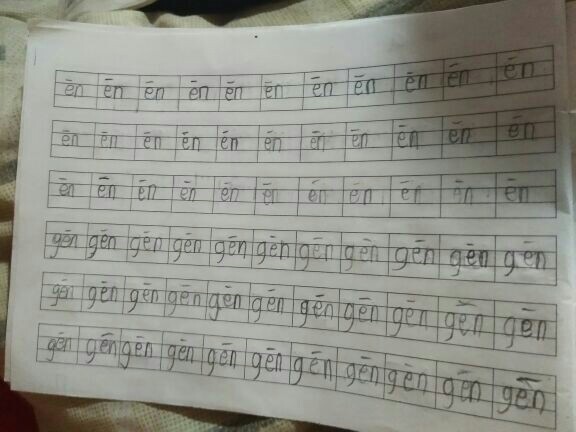 ēn ēn ēn ēn ēn ēn ēn ēn ēn ēn ēn
ēn ēn ēn ēn ēn ēn ēn ēn ēn ēn ēn
ēn ēn ēn ēn ēn ēn ēn ēn ēn ēn ēn
gēn gēn gēn gēn gēn gēn gēn gēn gēn gēn gēn
gēn gēn gēn gēn gēn gēn gēn gēn gēn gēn gēn
gēn gēn gēn gēn gēn gēn gēn gēn gēn gēn gēn